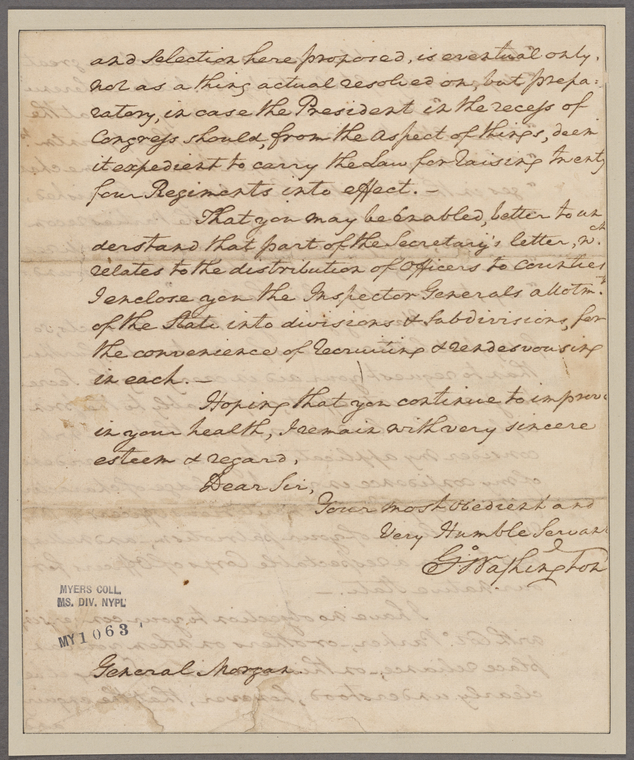 and Selection here proposed, is eventual only,
not as a thing actual resolved on, but prepa=
ratory, in case the President in the recess of
Congress should, from the aspect of things, deem
it expedient to carry the Law for raising twenty
four Regiments into effect. —
That you may be enabled, better to un
derstand that part of the Secretary's letter, wch.
relates to the distribution of Officers to Counties
I enclose you the Inspector Generals allotmt.
of the State into divisions & Subdivisions, for
the convenience of recruiting & rendesvousing
in each. —
Hoping that you continue to improve
in your health, I remain with very sincere
esteem & regard,
Dear Sir,
Your most Obedient and
Very Humble Servant
Go. Washington
MYERS COLL.
MS. DIV. NYPL
MY 1063
General Morgan.